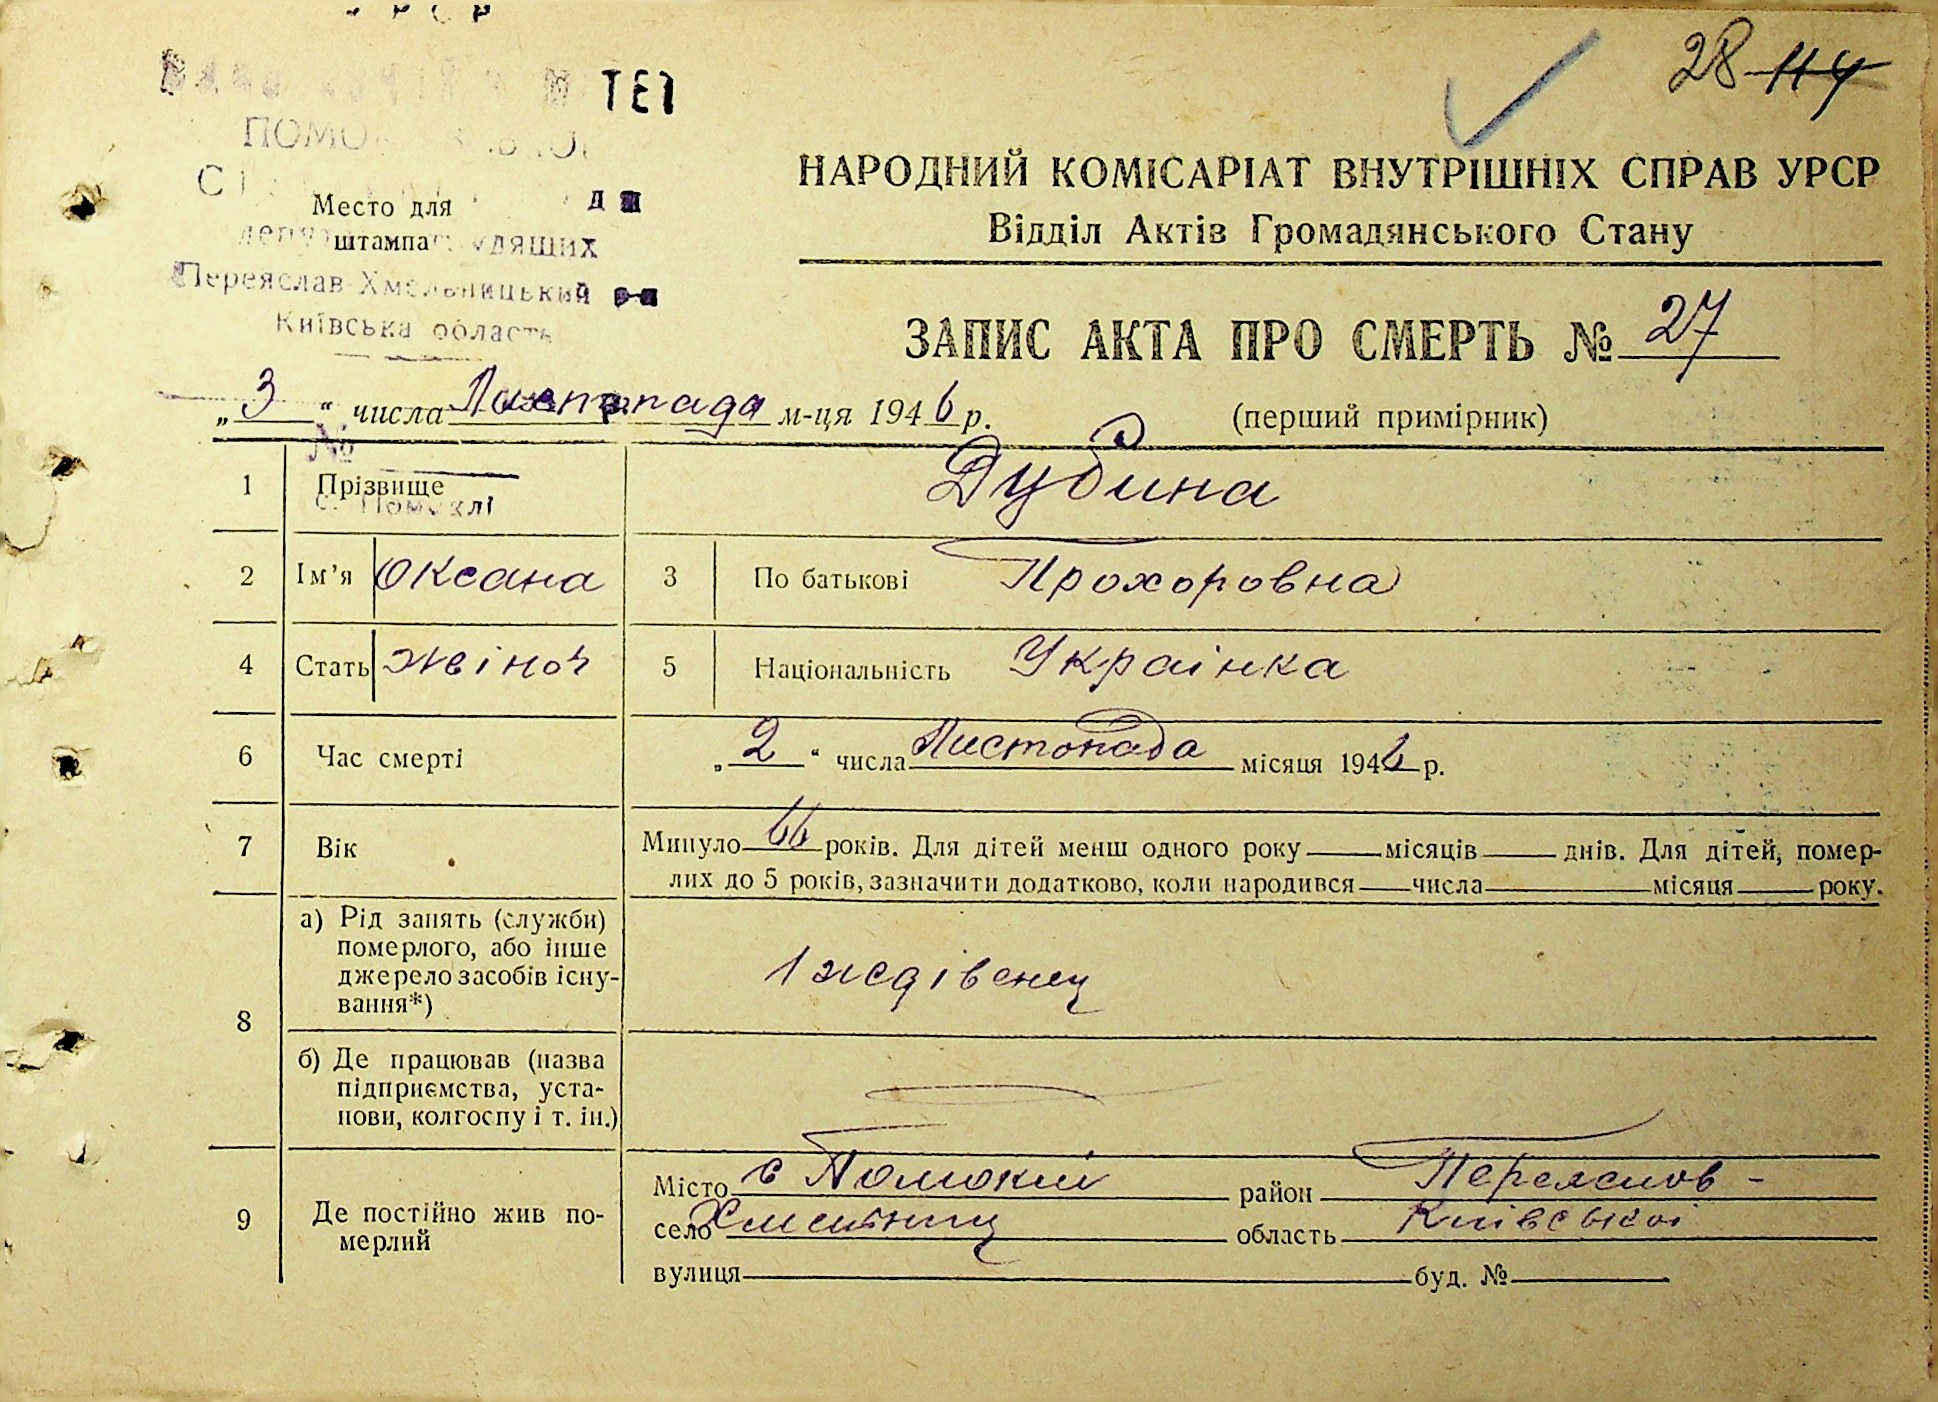 УРСР
28 114
ПОМОК
НАРОДНИЙ КОМІСАРІАТ ВНУТРІШНІХ СПРАВ УРСР
Место для
штампа
депутатів трудящих
Відділ Актів Громадянського Стану
Переяслав-Хмельницький р-н
Київська область
ЗАПИС АКТА ПРО СМЕРТЬ № 27
„3“ числа Листопада м-ця 1946 р. (перший примірник)
№
1 Прізвище Дубина
с. Помоклі
2 Ім’я Оксана 3 По батькові Прохоровна
4 Стать жіноч 5 Національність Українка
6 Час смерті „2“ числа Листопада місяця 1946 р.
7 Вік Минуло 66 років. Для дітей менш одного року місяців днів. Для дітей, помер-
лих до 5 років, зазначити додатково, коли народився числа місяця року.
8 а) Рід занять (служби)
померлого, або інше
джерело засобів існу-
вання*)
1 ждівенец
б) Де працював (назва
підприємства, уста-
нови, колгоспу і т. ін.)
9 Де постійно жив по-
мерлий
Місто с Помоклі район Переяслов-
село Хмельниц область Київської
вулиця буд. №